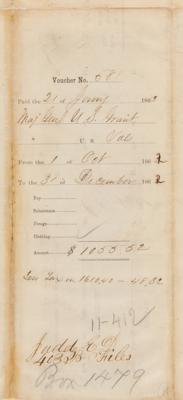 Voucher No. 68
Paid the 21 d Jany 1863
Maj Genl U. S. Grant,
" U. S. Vols
From the 1 st Oct 1862
To the 31 st December 1862
Pay
Subsistence
Forage
Clothing
Amount $ 1055.52
Less Tax on
11-412
Judd E. D.
Files
Box 1479